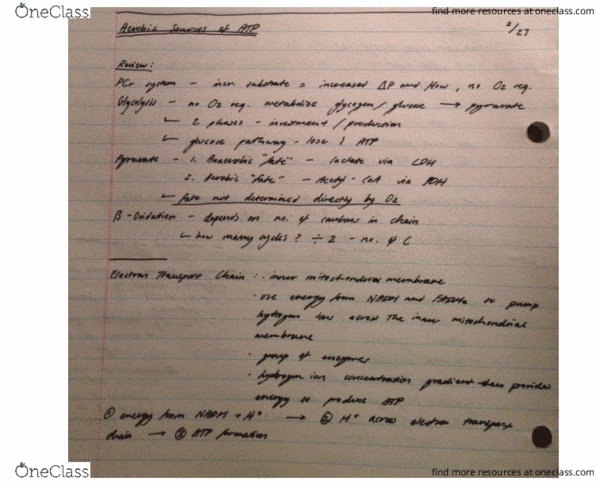 OneClass
find more resources at oneclass.com
Aerobic Sources of ATP
2/27
Review:
PCr system - incr. substrate = increased ΔP and flow, no O2 req.
Glycolysis - no O2 req. metabolize glycogen/glucose → pyruvate
↳ 2 phases - investment/production
↳ glucose pathway - lose 1 ATP
Pyruvate - 1. Anaerobic "fate" - lactate via LDH
2. Aerobic "fate" - Acetyl-CoA via PDH
↳ fate not determined directly by O2
β-Oxidation - depends on no. of carbons in chain
↳ how many cycles? ÷ 2 - no. of C
Electron Transport Chain : · inner mitochondrial membrane
· use energy from NADH and FADH2 to pump
hydrogen ions across the inner mitochondrial
membrane
· group of enzymes
· hydrogen ion concentration gradient then provides
energy to produce ATP
① energy from NADH + H+ → ② H+ across electron transport
chain → ③ ATP formation
OneClass
find more resources at oneclass.com